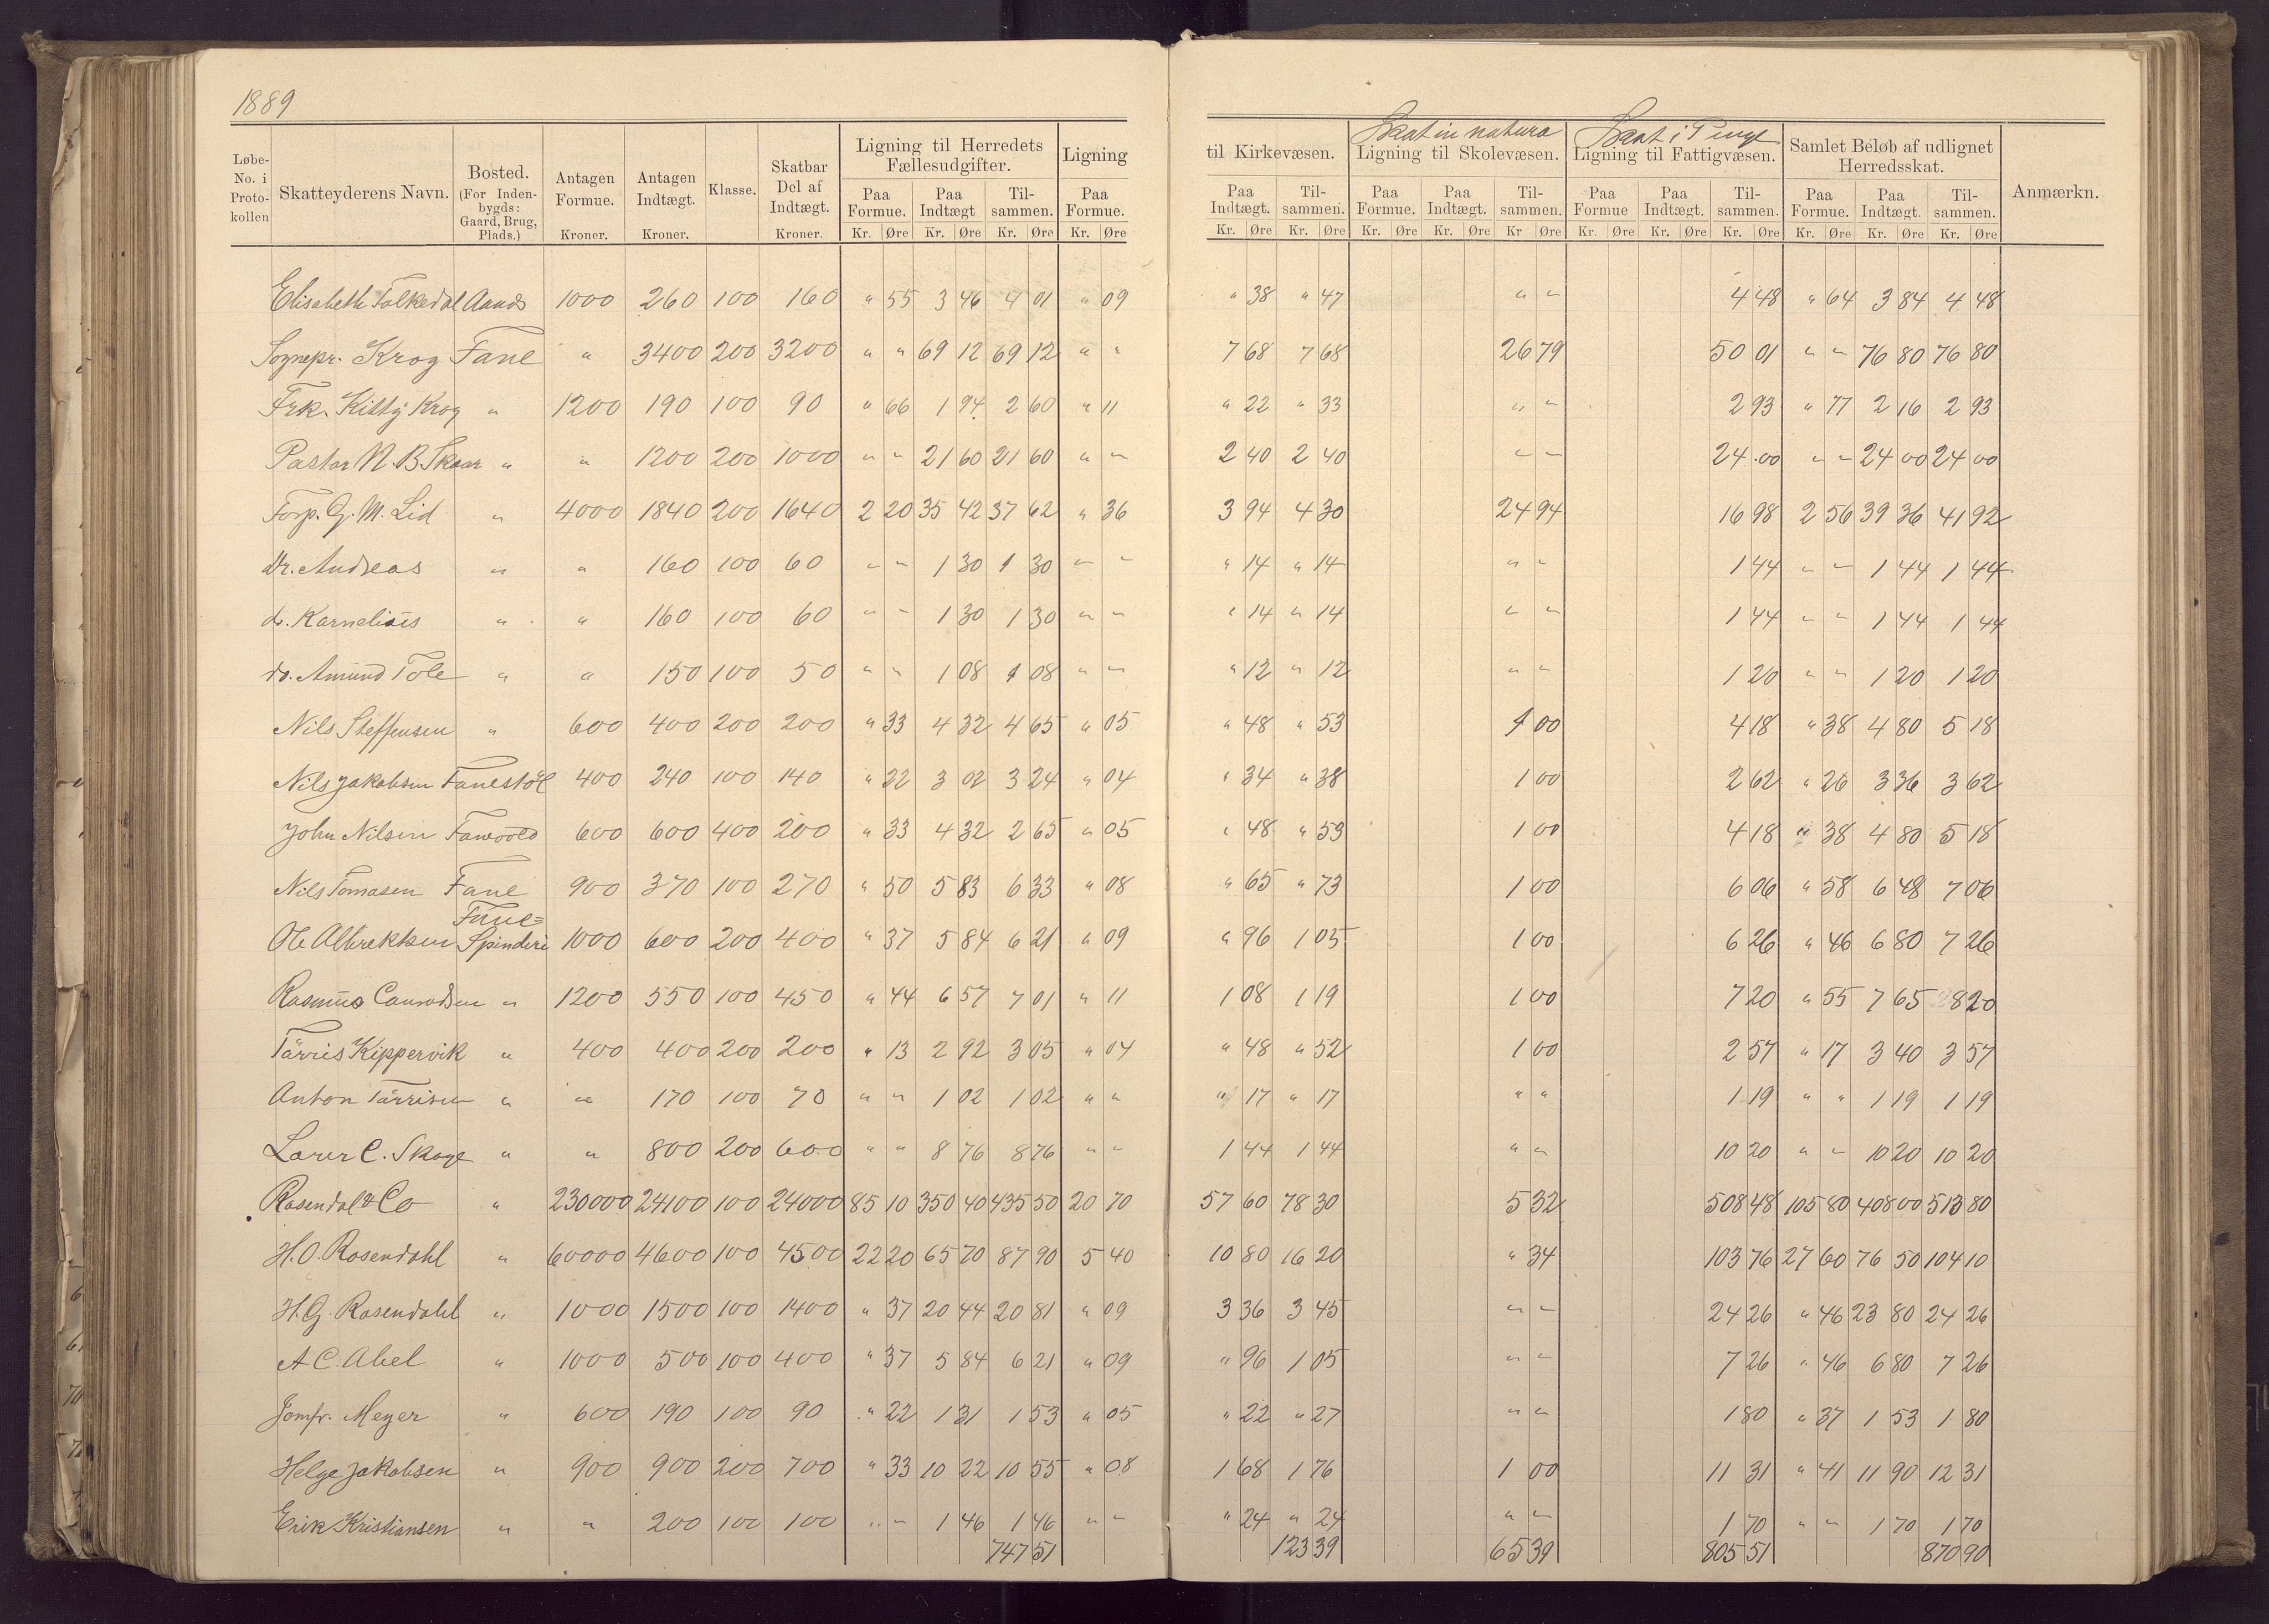 1889
Løbe- No. i Proto- kollen | Skatteyderens Navn. | Bosted. (For Inden- bygds: Gaard, Brug, Plads.) | Antagen Formue. Kroner. | Antagen Indtægt. Kroner. | Klasse. | Skatbar Del af Indtægt. Kroner. | Ligning til Herredets Fællesudgifter. | Ligning
Paa Formue. Kr. Øre | Paa Indtægt Kr. Øre | Til- sammen. Kr. Øre | Paa Formue. Kr. Øre
Skat in natura | Skat i Penge
til Kirkevæsen. | Ligning til Skolevæsen. | Ligning til Fattigvæsen. | Samlet Beløb af udlignet Herredsskat. | Anmærkn.
Paa Indtægt. Kr. Øre | Til- sammen. Kr. Øre | Paa Formue. Kr. Øre | Paa Indtægt. Kr. Øre | Til- sammen. Kr Øre | Paa Formue Kr. Øre | Paa Indtægt. Kr. Øre | Til- sammen. Kr. Øre | Paa Formue. Kr. Øre | Paa Indtægt. Kr. Øre | Til- sammen. Kr. Øre
Elisabeth Folkedal 1000 260 100 160 " 55 3 46 4 01 " 09 " 38 " 47 " " 4 48 " 64 3 84 4 48
Sognepr. Krog Fane " 3400 200 3200 " " 69 12 69 12 " " 7 68 7 68 26 79 50 01 " " 76 80 76 80
Frk. Kitty Krog " 1200 190 100 90 " 66 1 94 2 60 " 11 " 22 " 33 " " 2 93 " 77 2 16 2 93
Pastor N. B. Skaar " " 1200 200 1000 " " 21 60 21 60 " " 2 40 2 40 " " 24 00 " " 24 00 24 00
Forp. G. M. Lid " 4000 1840 200 1640 2 20 35 42 37 62 " 36 3 94 4 30 24 94 16 98 2 56 39 36 41 92
Dr. Andreas " " 160 100 60 " " 1 30 1 30 " " " 14 " 14 " " 1 44 " " 1 44 1 44
d. Kornelius " " 160 100 60 " " 1 30 1 30 " " " 14 " 14 " " 1 44 " " 1 44 1 44
do. Amund Tole " " 150 100 50 " " 1 08 1 08 " " " 12 " 12 " " 1 20 " " 1 20 1 20
Nils Steffensen " 600 400 200 200 " 33 4 32 4 65 " 05 " 48 " 53 1 00 4 18 " 38 4 80 5 18
Nils Jakobsen Fanestöl 400 240 100 140 " 22 3 02 3 24 " 04 " 34 " 38 1 00 2 62 " 26 3 36 3 62
John Nilsen 600 600 400 200 " 33 4 32 2 65 " 05 " 48 " 53 1 00 4 18 " 38 4 80 5 18
Nils Tomasen Fane 900 370 100 270 " 50 5 83 6 33 " 08 " 65 " 73 1 00 6 06 " 58 6 48 7 06
Fane=
Ole Albrektsen Spinderi 1000 600 200 400 " 37 5 84 6 21 " 09 " 96 1 05 1 00 6 26 " 46 6 80 7 26
Rasmus Conradsen " 1200 550 100 450 " 44 6 57 7 01 " 11 1 08 1 19 1 00 7 20 " 55 7 65 8 20
Tärris Kippervik " 400 400 200 200 " 13 2 92 3 05 " 04 " 48 " 52 1 00 2 57 " 17 3 40 3 57
Anton Tärrisen " " 170 100 70 " " 1 02 1 02 " " " 17 " 17 " " 1 19 " " 1 19 1 19
C. Skage " " 800 200 600 " " 8 76 8 76 " " 1 44 1 44 " " 10 20 " " 10 20 10 20
Rosendal & Co " 230000 24100 100 24000 85 10 350 40 435 50 20 70 57 60 78 30 5 32 508 48 105 80 408 00 513 80
H. O. Rosendahl " 60000 4600 100 4500 22 20 65 70 87 90 5 40 10 80 16 20 " 34 103 76 27 60 76 50 104 10
H. G. Rosendahl " 1000 1500 100 1400 " 37 20 44 20 81 " 09 3 36 3 45 " " 24 26 " 46 23 80 24 26
A C. Abel " 1000 500 100 400 " 37 5 84 6 21 " 09 " 96 1 05 " " 7 26 " 46 6 80 7 26
Jomfr. Meyer " 600 190 100 90 " 22 1 31 1 53 " 05 " 22 " 27 " " 1 80 " 37 1 53 1 80
Helge Jakobsen " 900 900 200 700 " 33 10 22 10 55 " 08 1 68 1 76 1 00 11 31 " 41 11 90 12 31
Erik Kristiansen " " 200 100 100 " " 1 46 1 46 " " " 24 " 24 " " 1 70 " " 1 70 1 70
747 51 123 39 65 39 805 51 870 90